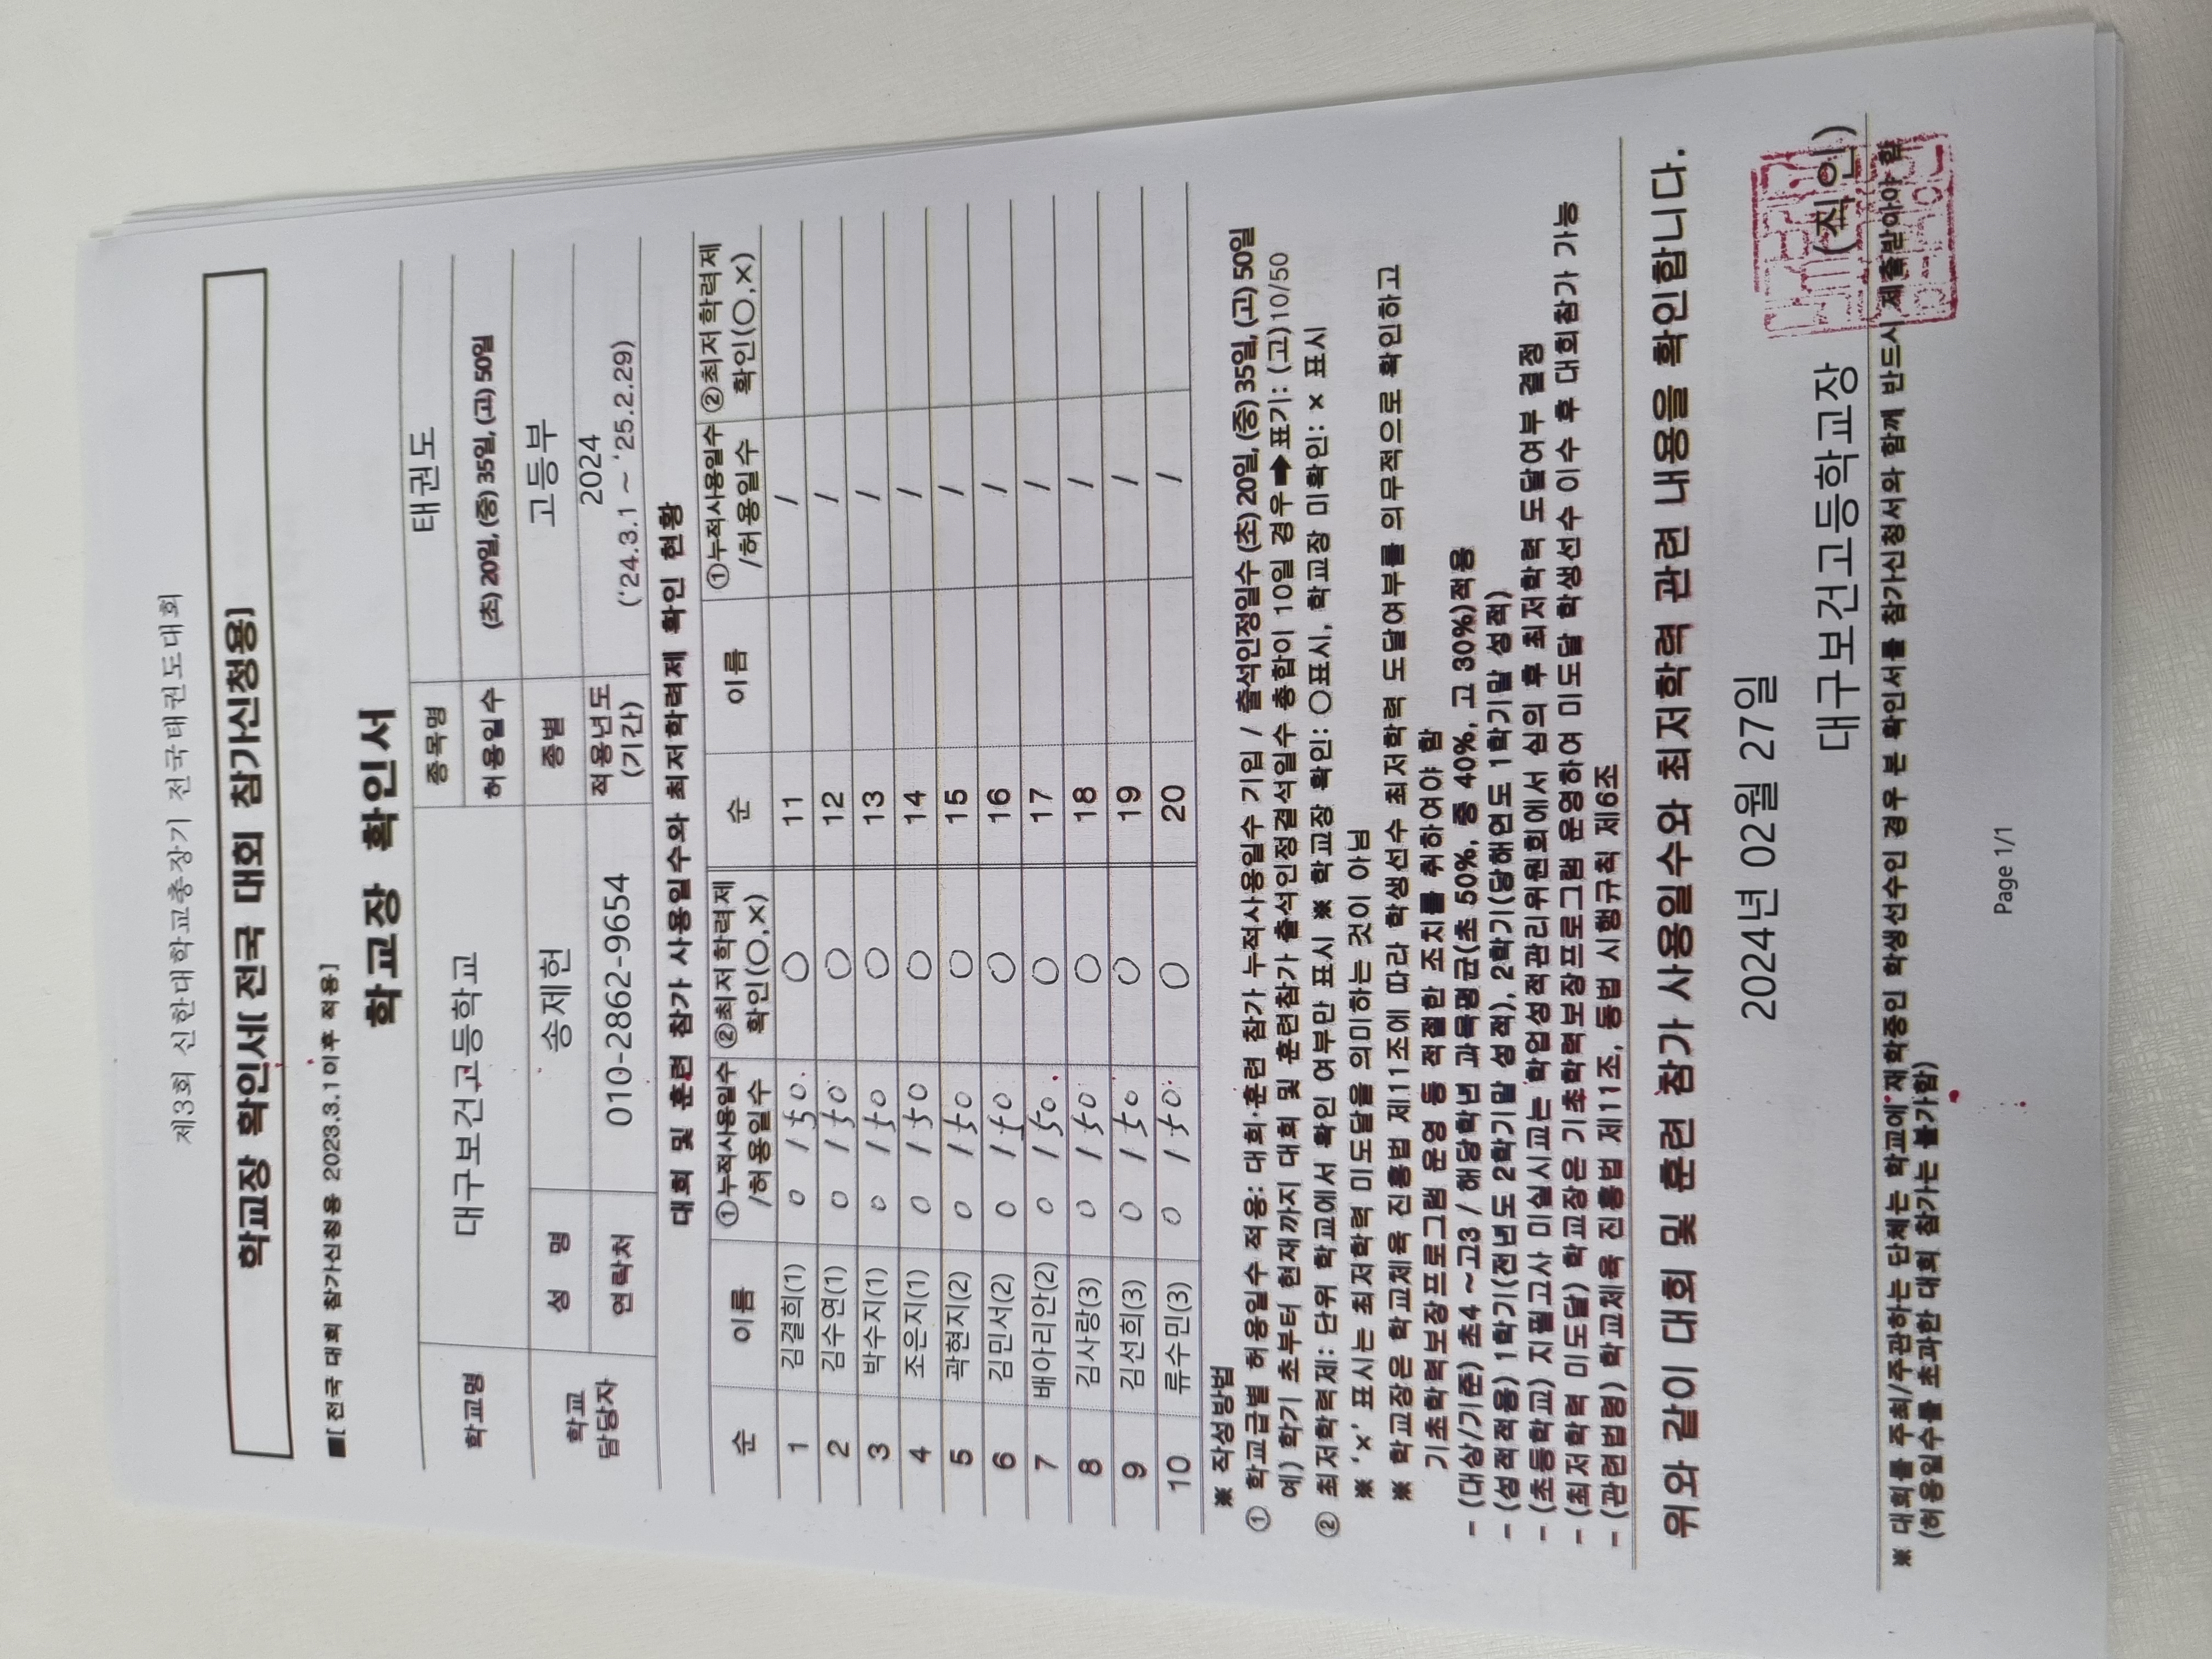 제3회 신한대학교총장기 전국태권도대회
학교장 확인서[ 전국 대회 참가신청용]
■[ 전국 대회 참가신청용 2023.3.1이후 적용]
학교장 확인서
학교명 대구보건고등학교 종목명 태권도
허용일수 (초) 20일, (중) 35일, (고) 50일
학교 담당자 성 명 송제헌 종별 고등부
연락처 010-2862-9654 적용년도 (기간) 2024 ('24.3.1 ~ '25.2.29)
대회 및 훈련 참가 사용일수와 최저학력제 확인 현황
순 이름 ①누적사용일수 /허용일수 ②최저학력제 확인(○,×) 순 이름 ①누적사용일수 /허용일수 ②최저학력제 확인(○,×)
1 김결희(1) 0 / 50 ○ 11 /
2 김수연(1) 0 / 50 ○ 12 /
3 박수지(1) 0 / 50 ○ 13 /
4 조은지(1) 0 / 50 ○ 14 /
5 곽현지(2) 0 / 50 ○ 15 /
6 김민서(2) 0 / 50 ○ 16 /
7 배아리안(2) 0 / 50 ○ 17 /
8 김사랑(3) 0 / 50 ○ 18 /
9 김선희(3) 0 / 50 ○ 19 /
10 류수민(3) 0 / 50 ○ 20 /
※ 작성방법
① 학교급별 허용일수 적용: 대회·훈련 참가 누적사용일수 기입 / 출석인정일수 (초) 20일, (중) 35일, (고) 50일
예) 학기 초부터 현재까지 대회 및 훈련참가 출석인정결석일수 총합이 10일 경우 ➡ 표기: (고) 10/50
② 최저학력제: 단위 학교에서 확인 여부만 표시 ※ 학교장 확인: ○표시, 학교장 미확인: × 표시
※ '×' 표시는 최저학력 미도달을 의미하는 것이 아님
※ 학교장은 학교체육 진흥법 제11조에 따라 학생선수 최저학력 도달여부를 의무적으로 확인하고
기초학력보장프로그램 운영 등 적절한 조치를 취하여야 함
- (대상/기준) 초4 ~ 고3 / 해당학년 과목평균(초 50%, 중 40%, 고 30%)적용
- (성적적용) 1학기(전년도 2학기말 성적), 2학기(당해연도 1학기말 성적)
- (초등학교) 지필고사 미실시교는 학업성적관리위원회에서 심의 후 최저학력 도달여부 결정
- (최저학력 미도달) 학교장은 기초학력보장프로그램 운영하여 미도달 학생선수 이수 후 대회참가 가능
- (관련법령) 학교체육 진흥법 제11조, 동법 시행규칙 제6조
위와 같이 대회 및 훈련 참가 사용일수와 최저학력 관련 내용을 확인합니다.
2024년 02월 27일
대구보건고등학교장 (직인)
※ 대회를 주최/주관하는 단체는 학교에 재학중인 학생선수인 경우 본 확인서를 참가신청서와 함께 반드시 제출받아야 함
(허용일수를 초과한 대회 참가는 불가함)
Page 1/1